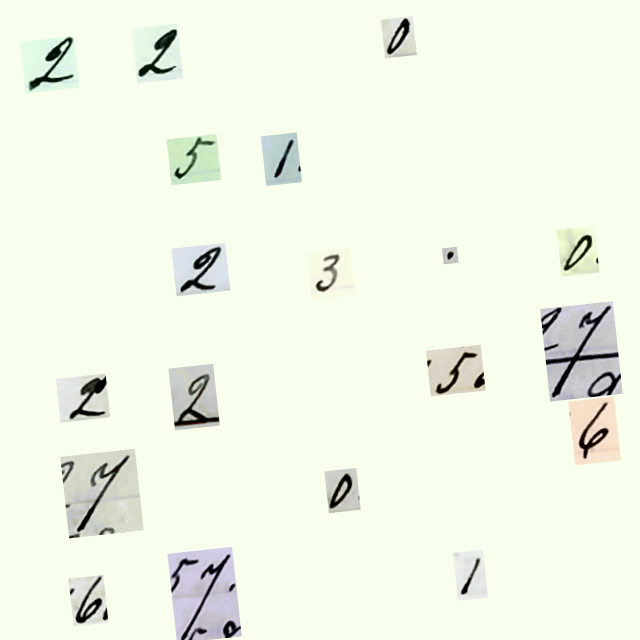 2 2 0
5 1.
2 3 . 0.
2 2 5. 7
6
7 0
6. 7 1